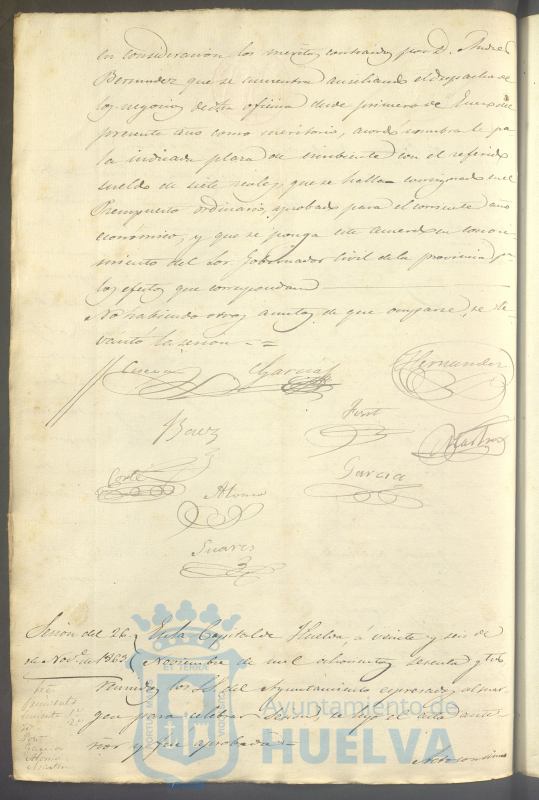 en consideración los meritos contraidos por D. Andres
Bermudez que se encuentra auxiliando el despacho de
los negocios de esta oficina desde primero de Enero del
presente año como meritorio, acordó nombrarle pa
la indicada plaza de escribiente con el referido
sueldo de siete reales, que se halla consignado en el
Presupuesto ordinario aprobado para el corriente año
económico, y que se ponga este acuerdo en conoci-
miento del Sor. Gobernador Civil de la provincia pa
los efectos que correspondan
No habiendo otros asuntos de que ocuparse se le-
vantó la sesion
Garcia
Hernandez
Baez
Cortés
Garcia
Alonso
Suarez
Sesion del 26 En la Capital de Huelva, á veinte y seis de
de Nov.e de 1863 Noviembre de mil ochocientos sesenta y tres
reunidos los S.S. del Ayuntamiento espresados al mar-
gen para celebrar Sesion, se leyó el acta ante-
rior y fue aprobada
Garcia
Alonso
PORTUS MARIS ET TERRAE
Ayuntamiento de
HUELVA